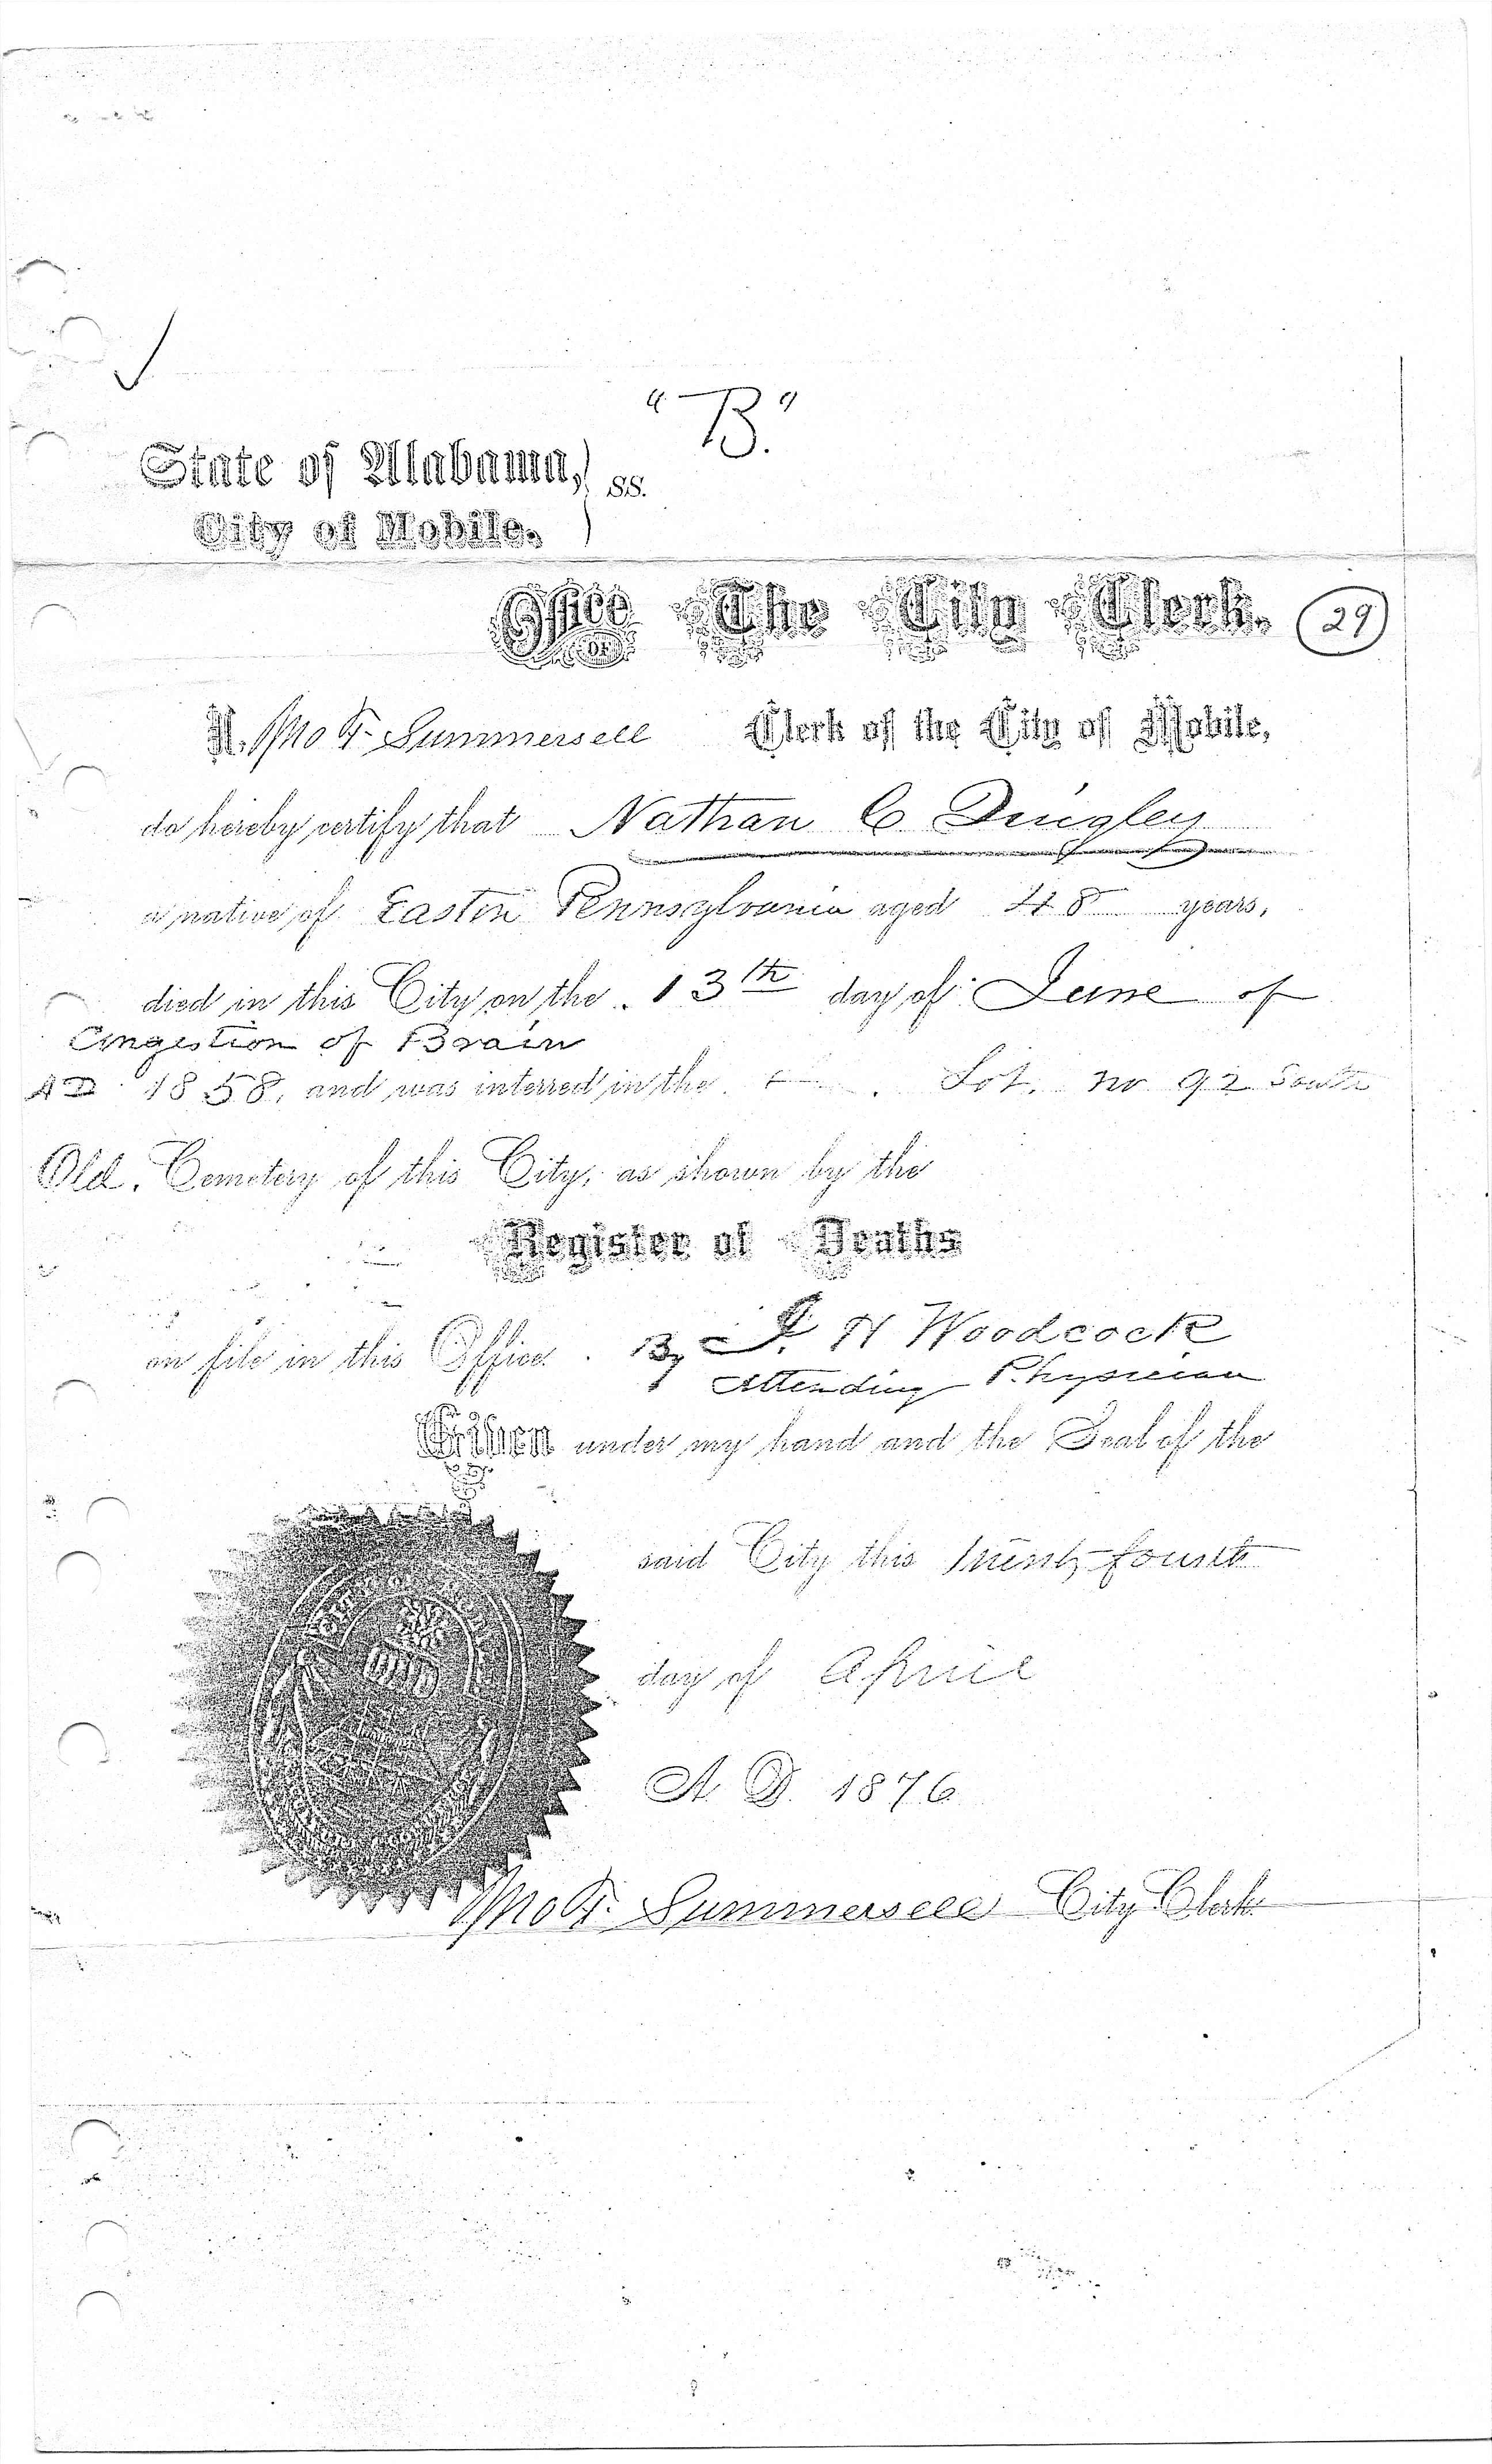 "B."
State of Alabama,
SS.
City of Mobile.
Office OF The City Clerk. 29
I. Mo F. Summersell Clerk of the City of Mobile,
do hereby certify that Nathan C Quigley
a native of Easton Pennsylvania aged 48 years,
died in this City on the 13th day of June of
Congestion of Brain
AD 1858, and was interred in the Lot. no 92 South
Old. Cemetery of this City, as shown by the
Register of Deaths
on file in this Office. By J. H Woodcock
Attending Physician
Given under my hand and the Seal of the
said City this twenty-fourth
day of April
A. D. 1876
Mo F. Summersell City Clerk